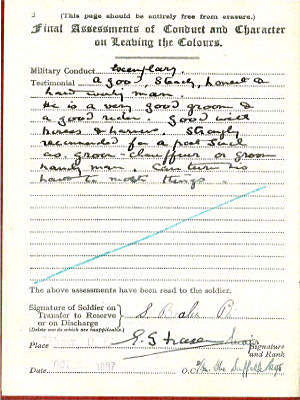 2
(This page should be entirely free from erasure.)
Final Assessments of Conduct and Character
on Leaving the Colours.
Military Conduct Exemplary.
Testimonial A good, steady, honest &
hard working man.
He is a very good groom &
a good rider. Good with
horses & harness. Strongly
recommended for a post such
as groom-chauffeur or groom
handy man. Can turn his
hand to most things.
The above assessments have been read to the soldier.
Signature of Soldier on
Transfer to Reserve
or on Discharge
(Delete words which are inapplicable.)
Place
Signature
and Rank
Date
O.C. The Suffolk Regt